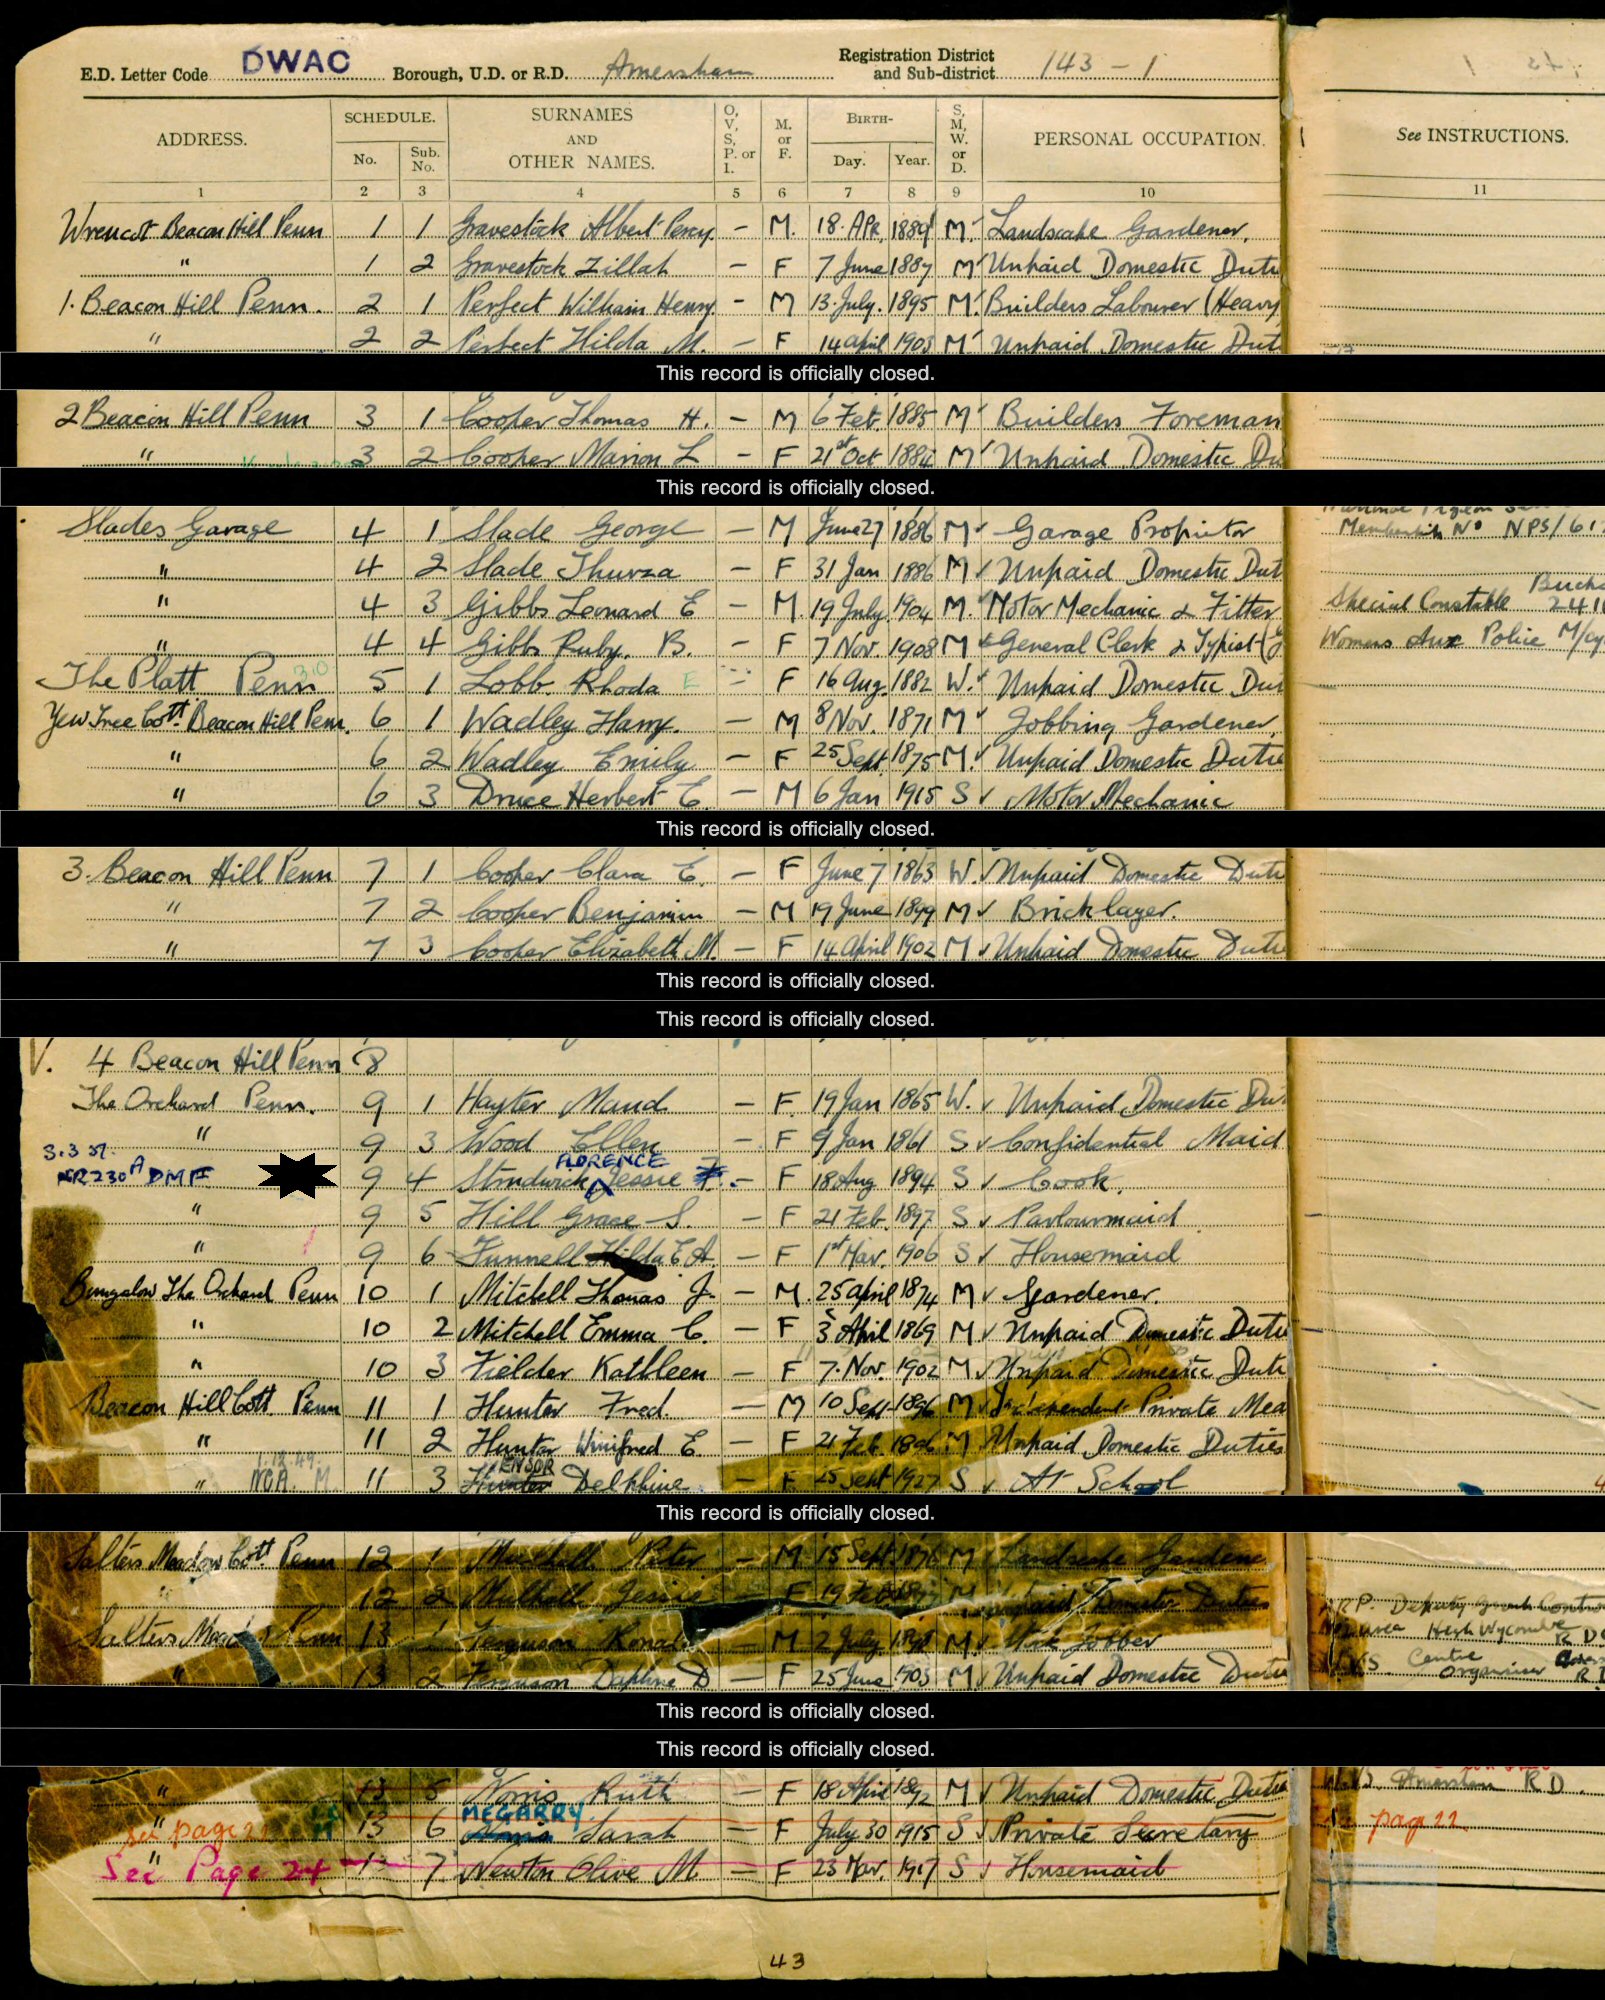 E.D. Letter Code DWAC Borough, U.D. or R.D. Amersham Registration District and Sub-district 143 - 1
ADDRESS. SCHEDULE. No. Sub. No. SURNAMES AND OTHER NAMES. O, V, S, P. or I. M. or F. BIRTH- Day. Year. S, M, W. or D. PERSONAL OCCUPATION. See INSTRUCTIONS.
1 2 3 4 5 6 7 8 9 10 11
Wrencot Beacon Hill Penn 1 1 Gravestock Albert Percy. - M. 18 APR. 1889 M. Landscape Gardener.
" 1 2 Gravestock Zillah - F 7 June 1887 M Unpaid Domestic Dutie
1. Beacon Hill Penn. 2 1 Perfect William Henry. - M 13 July. 1895 M. Builders Labourer (Heavy
" 2 2 Perfect Hilda M. - F 14 April 1903 M Unpaid Domestic Dut
This record is officially closed.
2 Beacon Hill Penn 3 1 Cooper Thomas H. - M 6 Feb. 1885 M Builders Foreman
" 3 2 Cooper Marion L - F 21st Oct 1884 M Unpaid Domestic Du
This record is officially closed.
Slades Garage 4 1 Slade George - M June 27 1886 M Garage Proprietor Membership No NPS/61
" 4 2 Slade Thurza - F 31 Jan 1886 M Unpaid Domestic Dut
" 4 3 Gibbs Leonard E - M 19 July 1904 M. Motor Mechanic & Fitter Special Constable Bucks 241
" 4 4 Gibbs Ruby. B. - F 7 Nov. 1908 M General Clerk & Typist Womens Aux Police M/cy
The Platt Penn 5 1 Lobb. Rhoda E - F 16 Aug. 1882 W. Unpaid Domestic Dut
Yew Tree Cott. Beacon Hill Penn. 6 1 Wadley Harry. - M 8 Nov. 1871 M Jobbing Gardener
" 6 2 Wadley Emily - F 25 Sept. 1875 M. Unpaid Domestic Dutie
" 6 3 Druce Herbert E. - M 6 Jan 1915 S Motor Mechanic
This record is officially closed.
3. Beacon Hill Penn 7 1 Cooper Clara E. - F June 7 1863 W. Unpaid Domestic Dutie
" 7 2 Cooper Benjamin - M 19 June 1899 M Bricklayer.
" 7 3 Cooper Elizabeth M. - F 14 April 1902 M Unpaid Domestic Dutie
This record is officially closed.
This record is officially closed.
V. 4 Beacon Hill Penn 8
The Orchard Penn. 9 1 Hayter Maud - F. 19 Jan 1865 W. Unpaid Domestic Du
" 9 3 Wood Ellen - F 9 Jan 1861 S Confidential Maid
3.3.51. NR230A DMF 9 4 Strudwick FLORENCE Jessie F. - F 18 Aug 1894 S Cook.
" 9 5 Hill Grace S. - F 21 Feb. 1897 S Parlourmaid
" 9 6 Funnell Hilda E A. - F 1st Mar. 1906 S Housemaid
Bungalow The Orchard Penn 10 1 Mitchell Thomas J. - M. 25 April 1874 M Gardener.
" 10 2 Mitchell Emma C. - F 3 April 1869 M Unpaid Domestic Dutie
" 10 3 Fielder Kathleen - F 7. Nov. 1902 M Unpaid Domestic Dutie
Beacon Hill Cott. Penn 11 1 Hunter Fred. - M 10 Sept 1896 M Independent Private Mea
" 11 2 Hunter Winifred E. - F 21 Feb. 1896 M Unpaid Domestic Duties
" 1.12.49. NCA. M 11 3 Hunter ENSOR Delphine. - F 25 Sept 1927 S At School
This record is officially closed.
Salters Meadow Cott Penn 12 1 Mulhall Peter - M 15 Sept. 1896 M Landscape Gardene
" 12 2 Mulhall Jessie - F 19 Feb M Unpaid Domestic Duties ARP. Deputy
Salters Meadow Penn 13 1 Ferguson Ronald - M 2 July 1898 M. Stock Jobber Area High Wycombe R D
" 13 2 Ferguson Daphne D - F 25 June 1903 M Unpaid Domestic Dutie WVS Centre Organiser R D
This record is officially closed.
This record is officially closed.
" 13 5 Norris Ruth - F 18 April 1892 M Unpaid Domestic Dutie Amersham R D.
" See page 22 13 6 Norris MEGARRY Sarah - F July 30 1915 S Private Secretary page 22
" See Page 24 13 7 Newton Olive M - F 23 Mar. 1917 S Housemaid
43